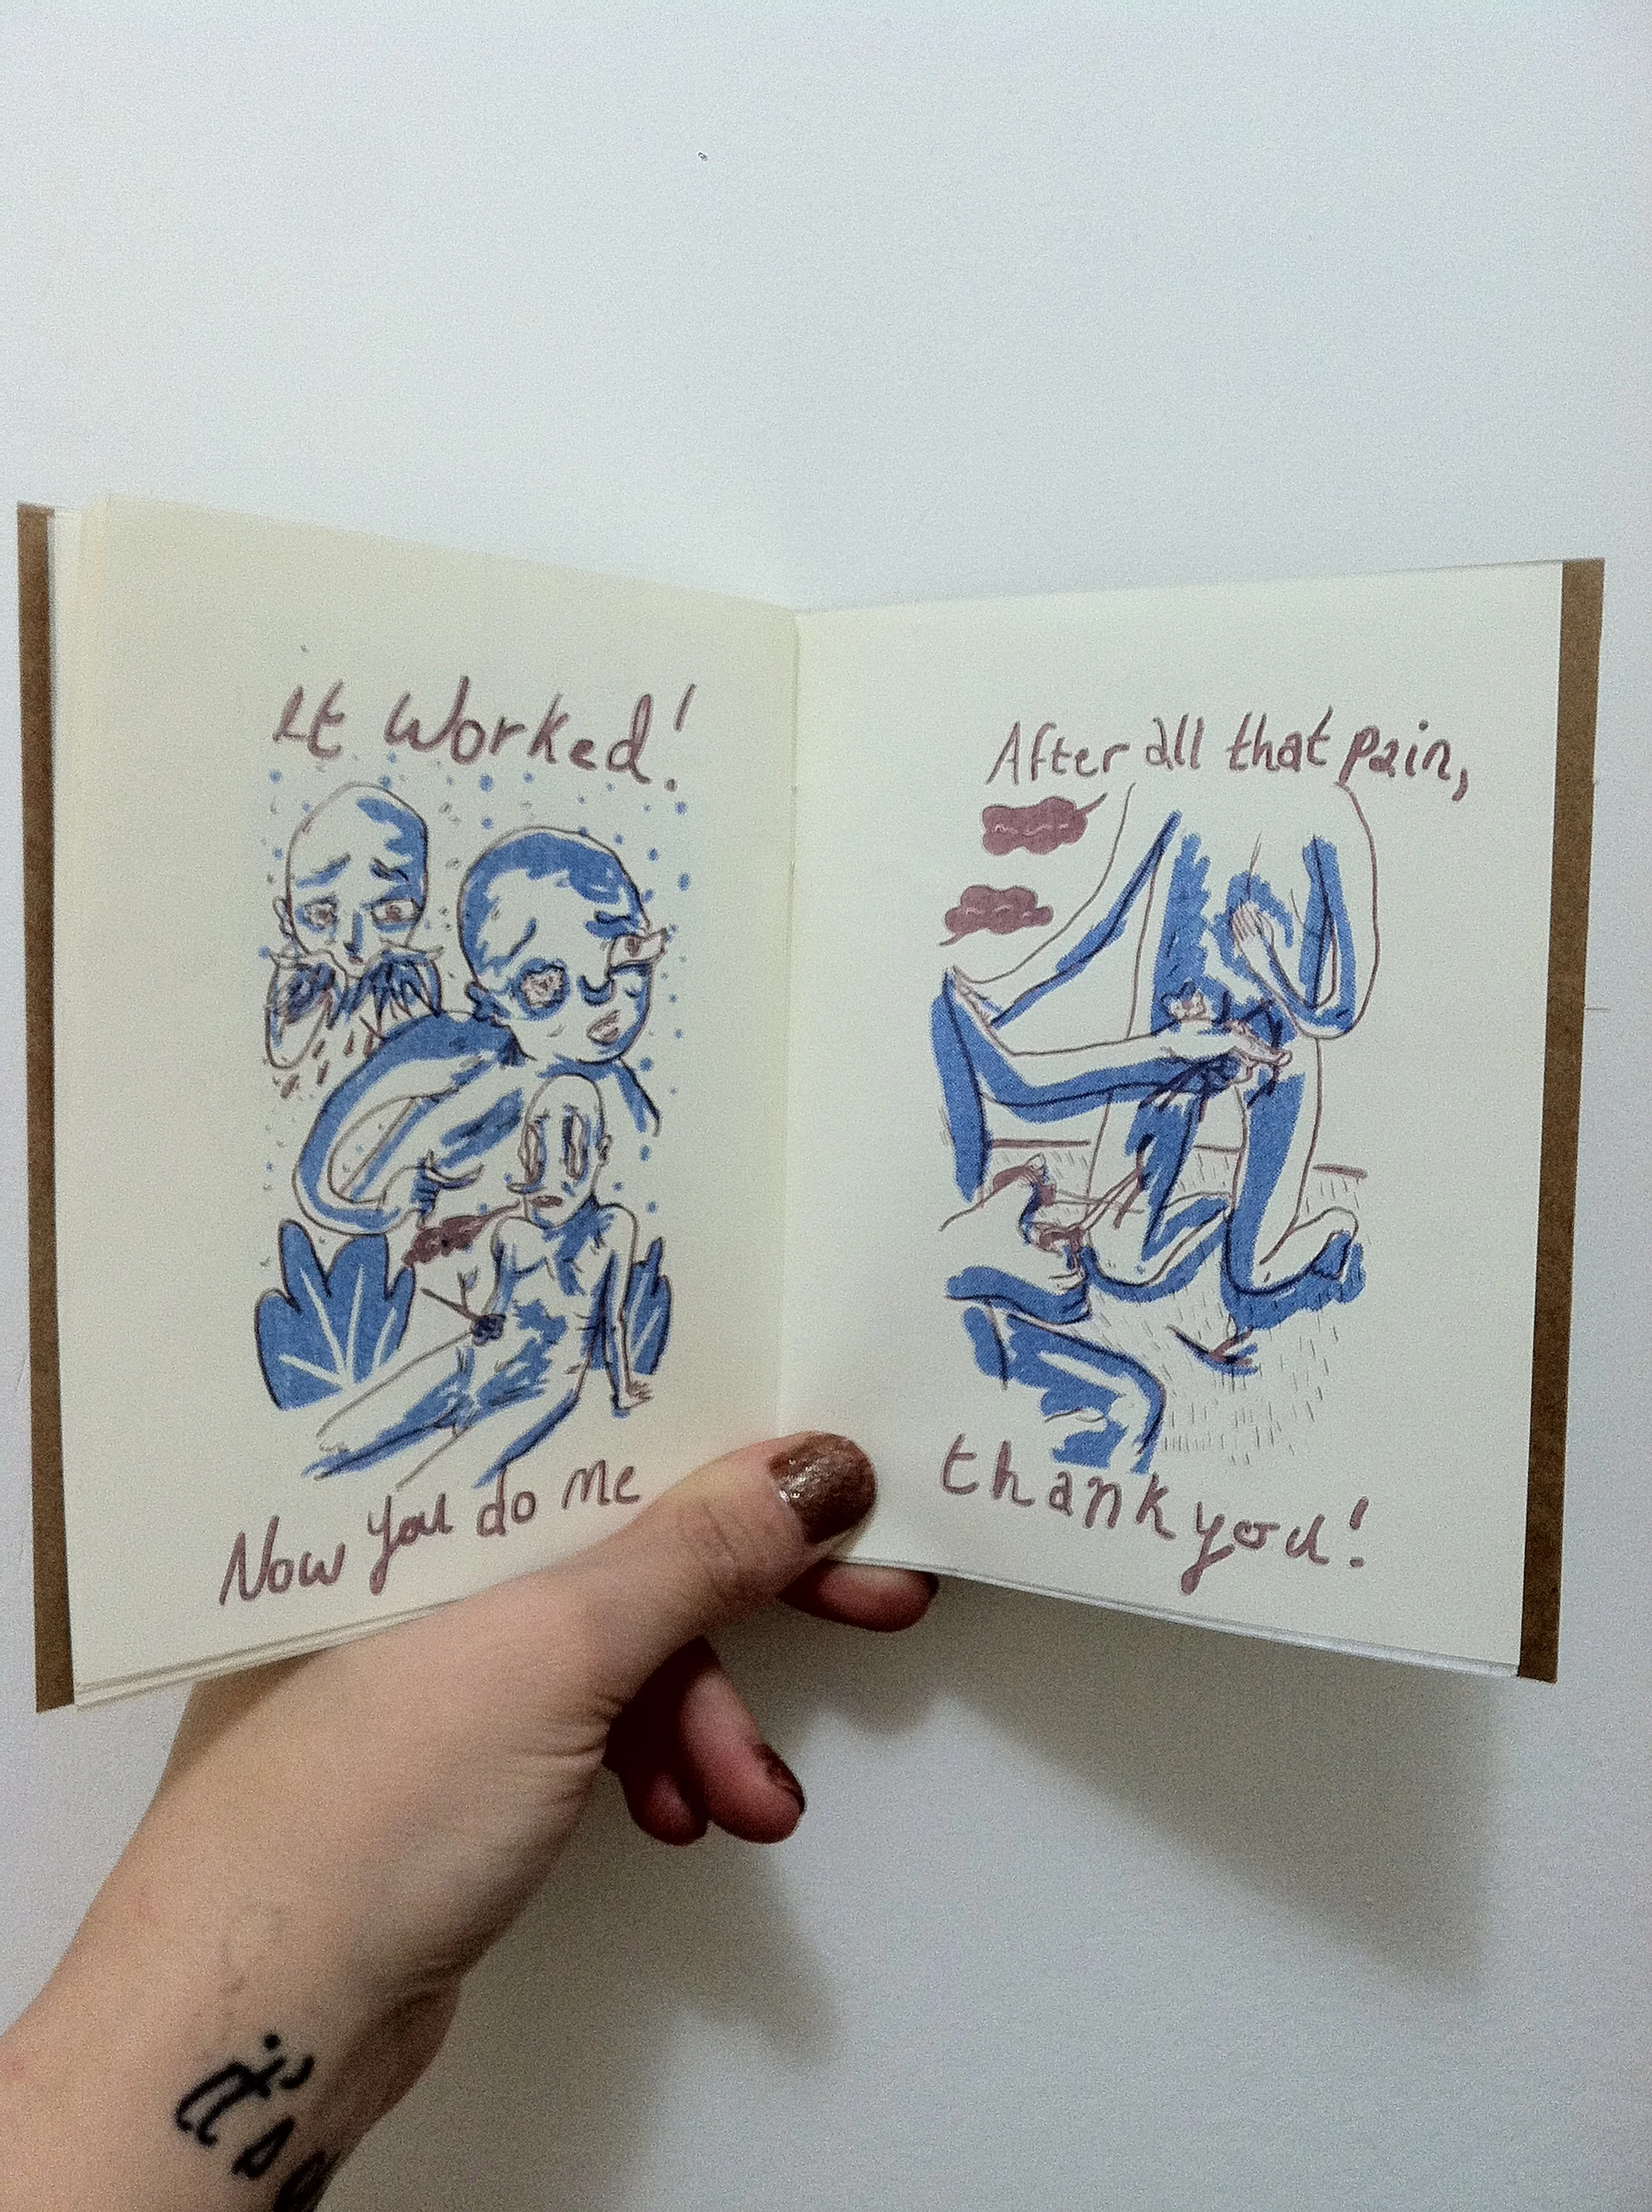 It Worked!
Now you do me
After all that pain,
thank you!